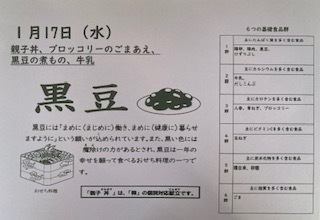 1月17日（水）
親子丼、ブロッコリーのごまあえ、
黒豆の煮もの、牛乳
黒豆
黒豆には「まめに（まじめに）働き、まめに（健康に）暮らせ
ますように」という願いが込められています。また、黒い色には
魔除けの力があるとされ、黒豆は一年の
幸せを願って食べるおせち料理の一つで
す。
おせち料理
「親子丼」は、「卵」の個別対応献立です。
6つの基礎食品群
1群
主にたんぱく質を多く含む食品
鶏卵、鶏肉、黒豆、
2群
主にカルシウムを多く含む食品
牛乳、
だしこんぶ
3群
主にカロテンを多く含む食品
人参、青ねぎ、ブロッコリー
4群
主にビタミンCを多く含む食品
玉ねぎ
5群
主に炭水化物を多く含む食品
精白米、砂糖
6群
主に脂質を多く含む食品
ごま